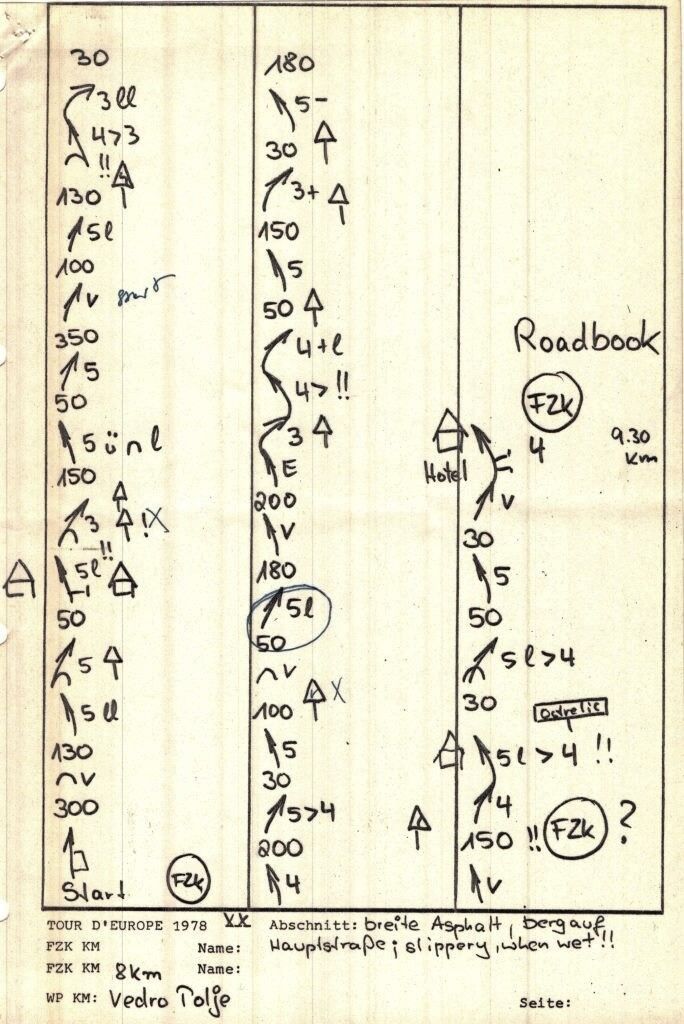 30
3 ll
4>3
!!
130
5 l
100
v
350
5
50
5 ü n l
150
3 ! X
!!
5 l
50
5
5 ll
130
v
300
Start
FZK
180
5-
30
3+
150
5
50
4+l
4> !!
3
E
200
v
180
5 l
50
v
100 X
5
30
5>4
200
4
Roadbook
FZK
4 9.30
Km
Hotel
v
30
5
50
5 l >4
30
5 l >4 !!
4
150 !! FZK ?
v
TOUR D'EUROPE 1978 XX Abschnitt: breite Asphalt, bergauf
FZK KM Name: Hauptstraße; slippery, when wet!!
FZK KM 8km Name:
WP KM: Vedro Polje Seite: